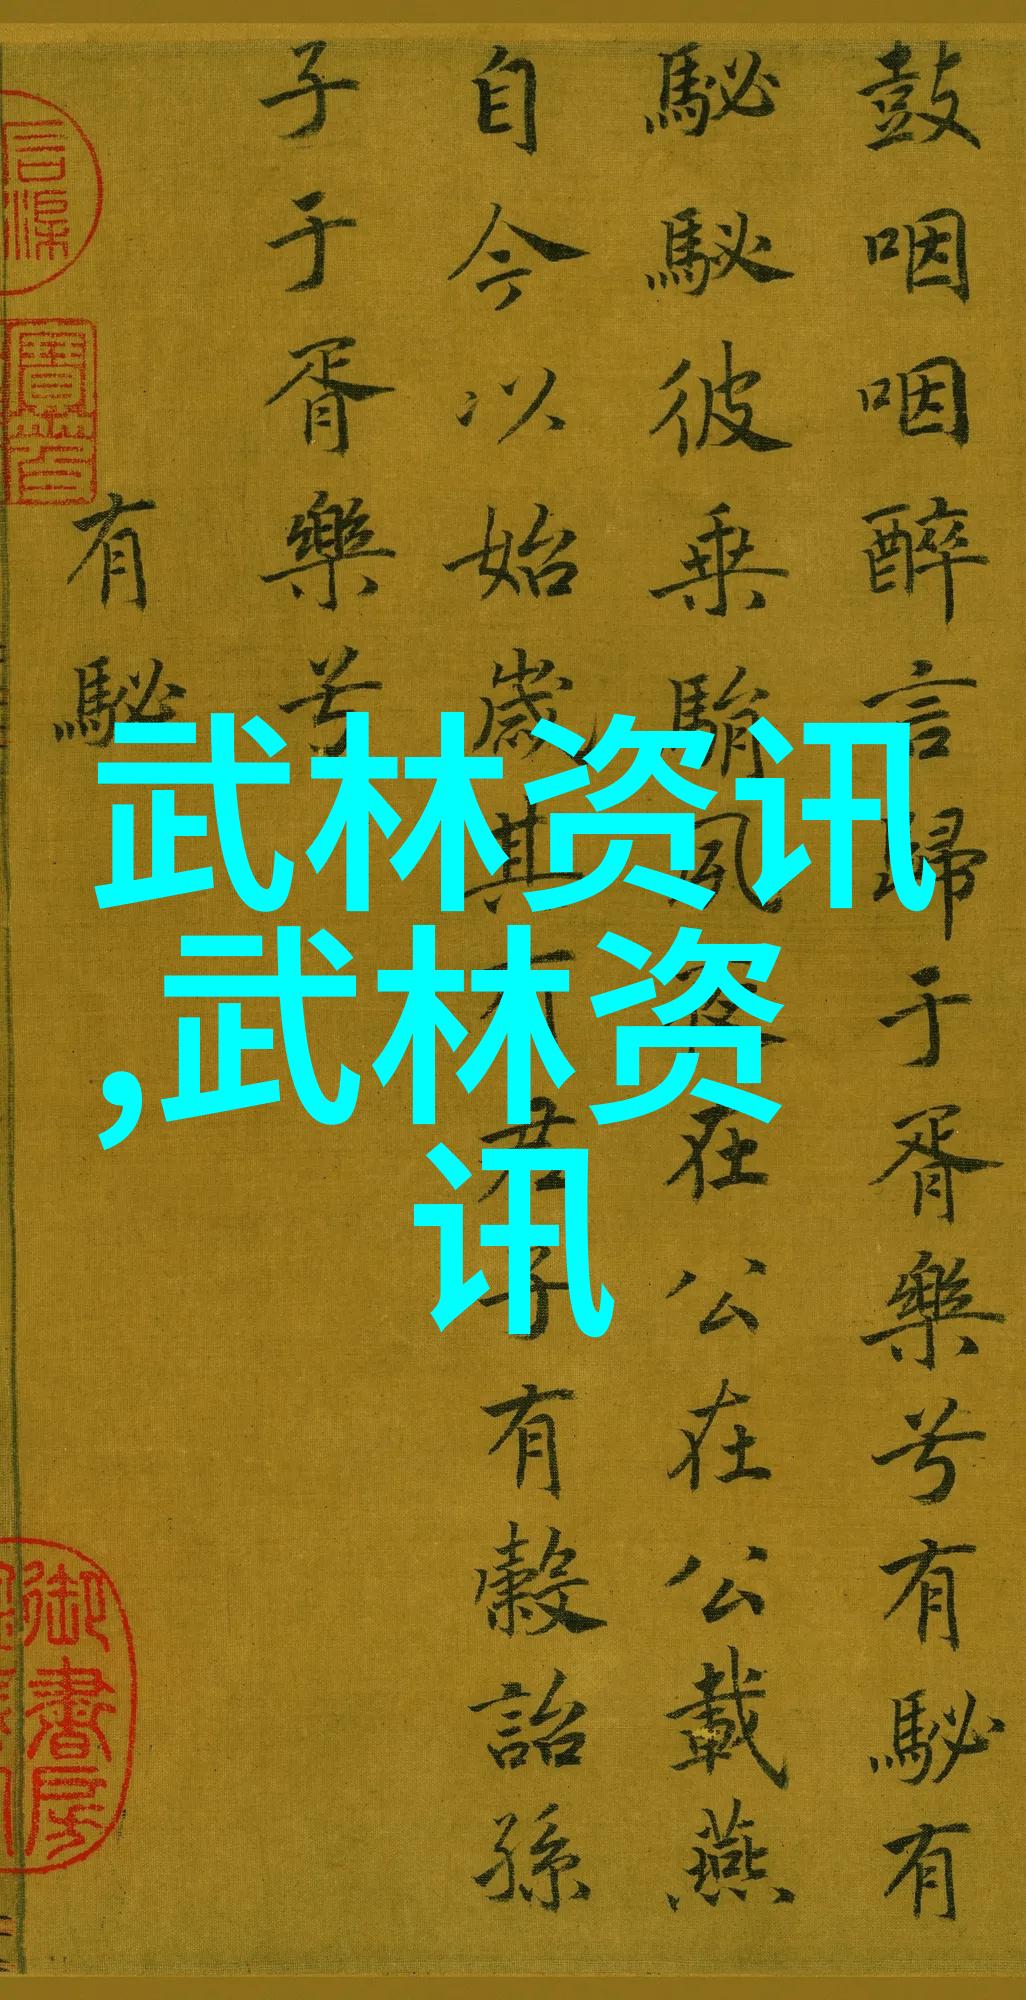 鼓咽咽醉言歸于胥樂兮有駜有
駜駜彼乗駽夙夜在公在公載燕
自今以始歲其有君子有穀詒孫
子于胥樂兮
有駜
御書房
武林资讯
,武林资
讯